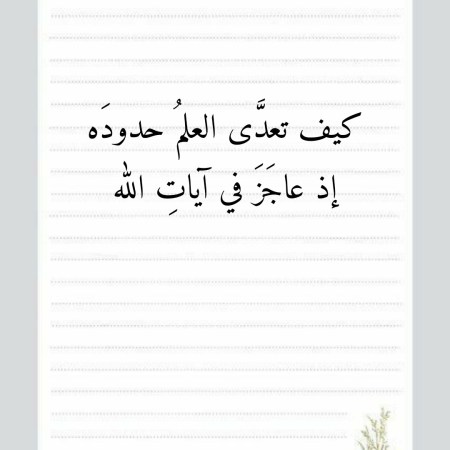 كيف تعدَّى العلمُ حدودَه
إذ عاجَزَ في آياتِ الله